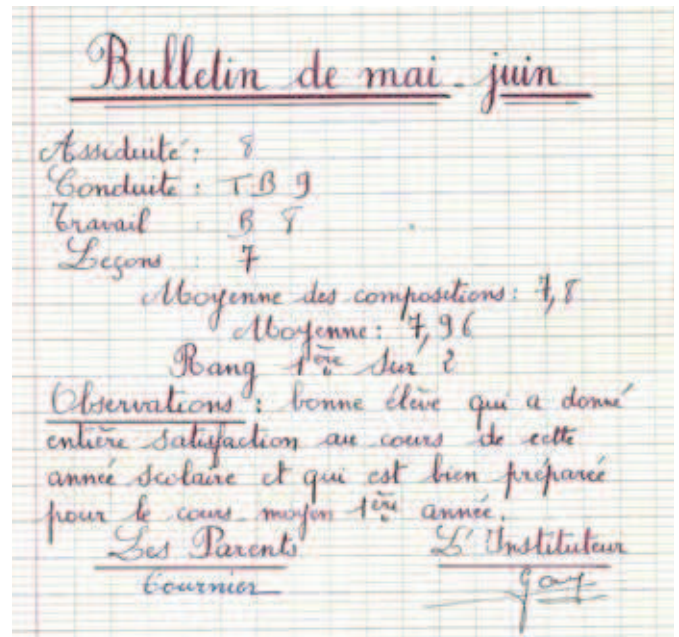 Bulletin de mai - juin
Assiduité : 8
Conduite : TB 9
Travail : B 8
Leçons : 7
Moyenne des compositions : 7,8
Moyenne : 7,96
Rang 1ère sur 2
Observations : bonne élève qui a donné
entière satisfaction au cours de cette
année scolaire et qui est bien préparée
pour le cours moyen 1ère année.
Les Parents L'Instituteur
Tournier Gay